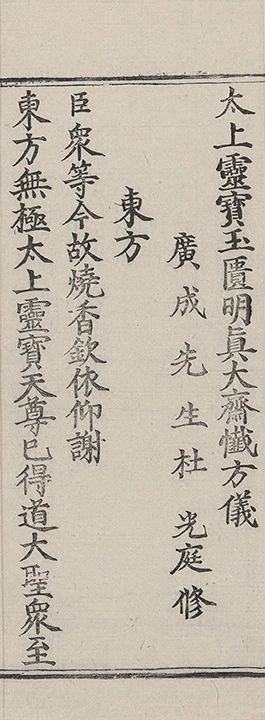 太上靈寶玉匱明真大齋懺方儀
廣成先生杜光庭修
東方
臣衆等今故燒香欽依仰謝
東方無極太上靈寶天尊已得道大聖衆至